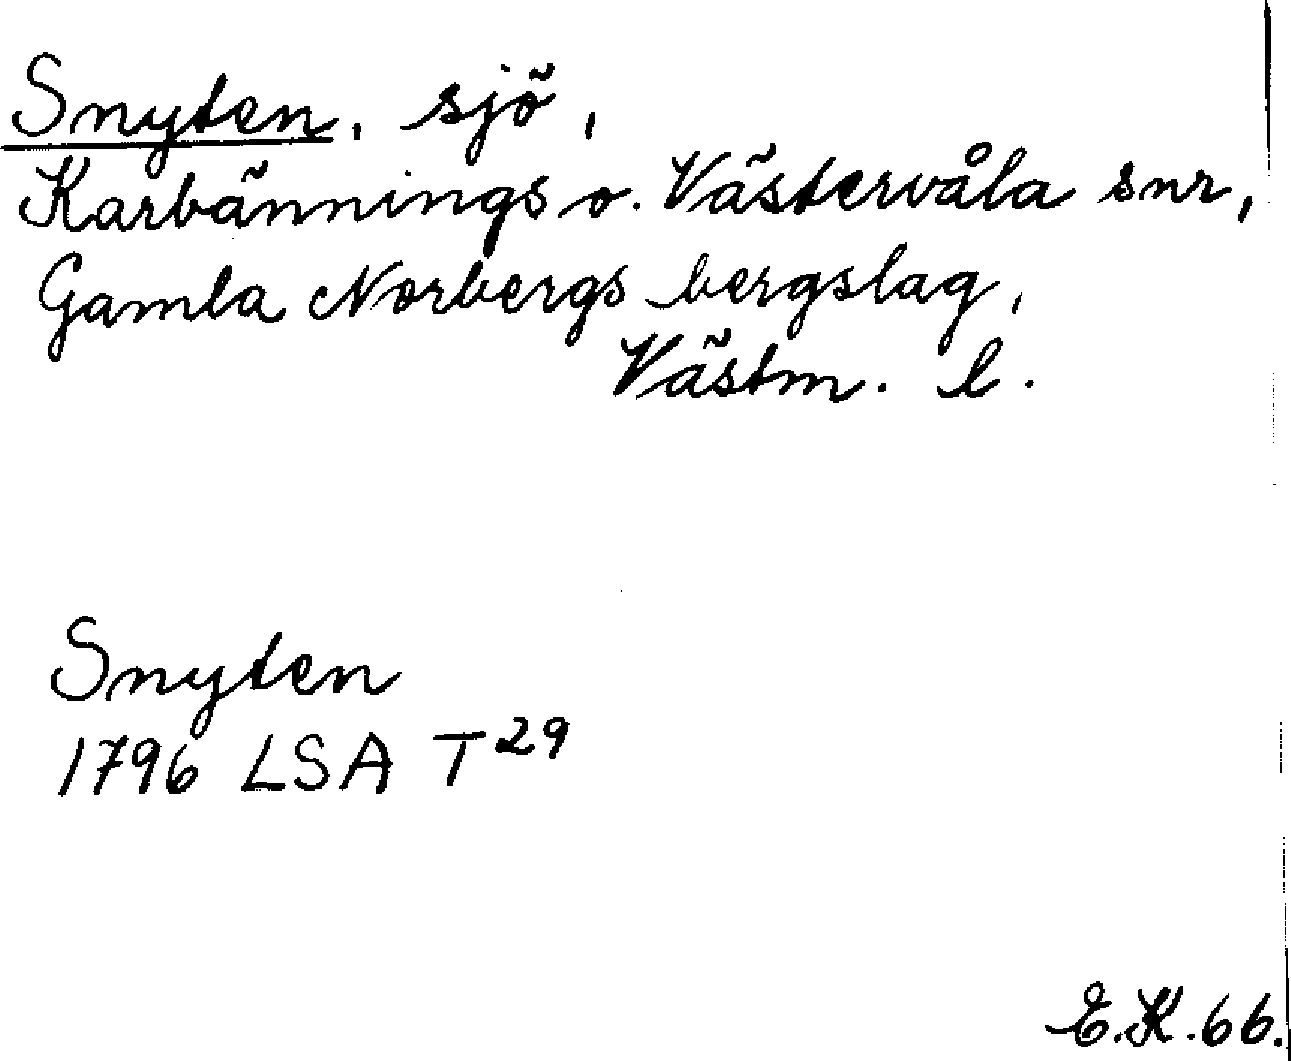 Snyten, sjö,
Karbännings o. Västervåla snr,
Gamla Norbergs bergslag,
Västm. l.
Snyten
1796 LSA T29
E.K. 66.